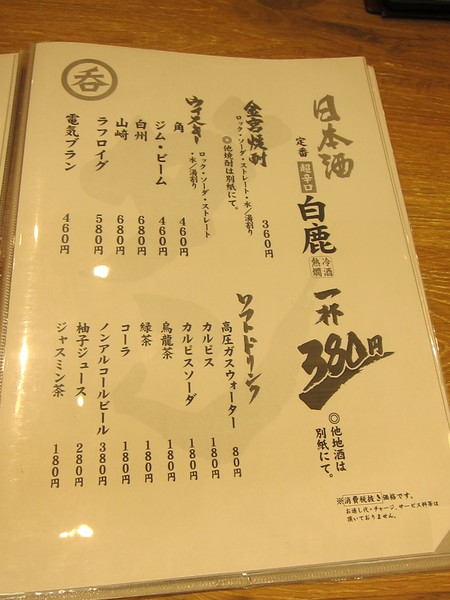 日本酒
定番 超辛口 白鹿 冷酒 熱燗 一杯 380円
◎他地酒は別紙にて。
※消費税抜き価格です。
お通し代・チャージ、サービス料等は
頂いておりません。
金宮焼酎
ロック・ソーダ・ストレート・水/湯割り 360円
◎他焼酎は別紙にて。
ウイスキー
ロック・ソーダ・ストレート
・水/湯割り
角 460円
ジム・ビーム 460円
白州 680円
山崎 680円
ラフロイグ 580円
電気ブラン 460円
呑
ソフトドリンク
高圧ガスウォーター 80円
カルピス 180円
カルピスソーダ 180円
烏龍茶 180円
緑茶 180円
コーラ 180円
ノンアルコールビール 380円
柚子ジュース 280円
ジャスミン茶 180円